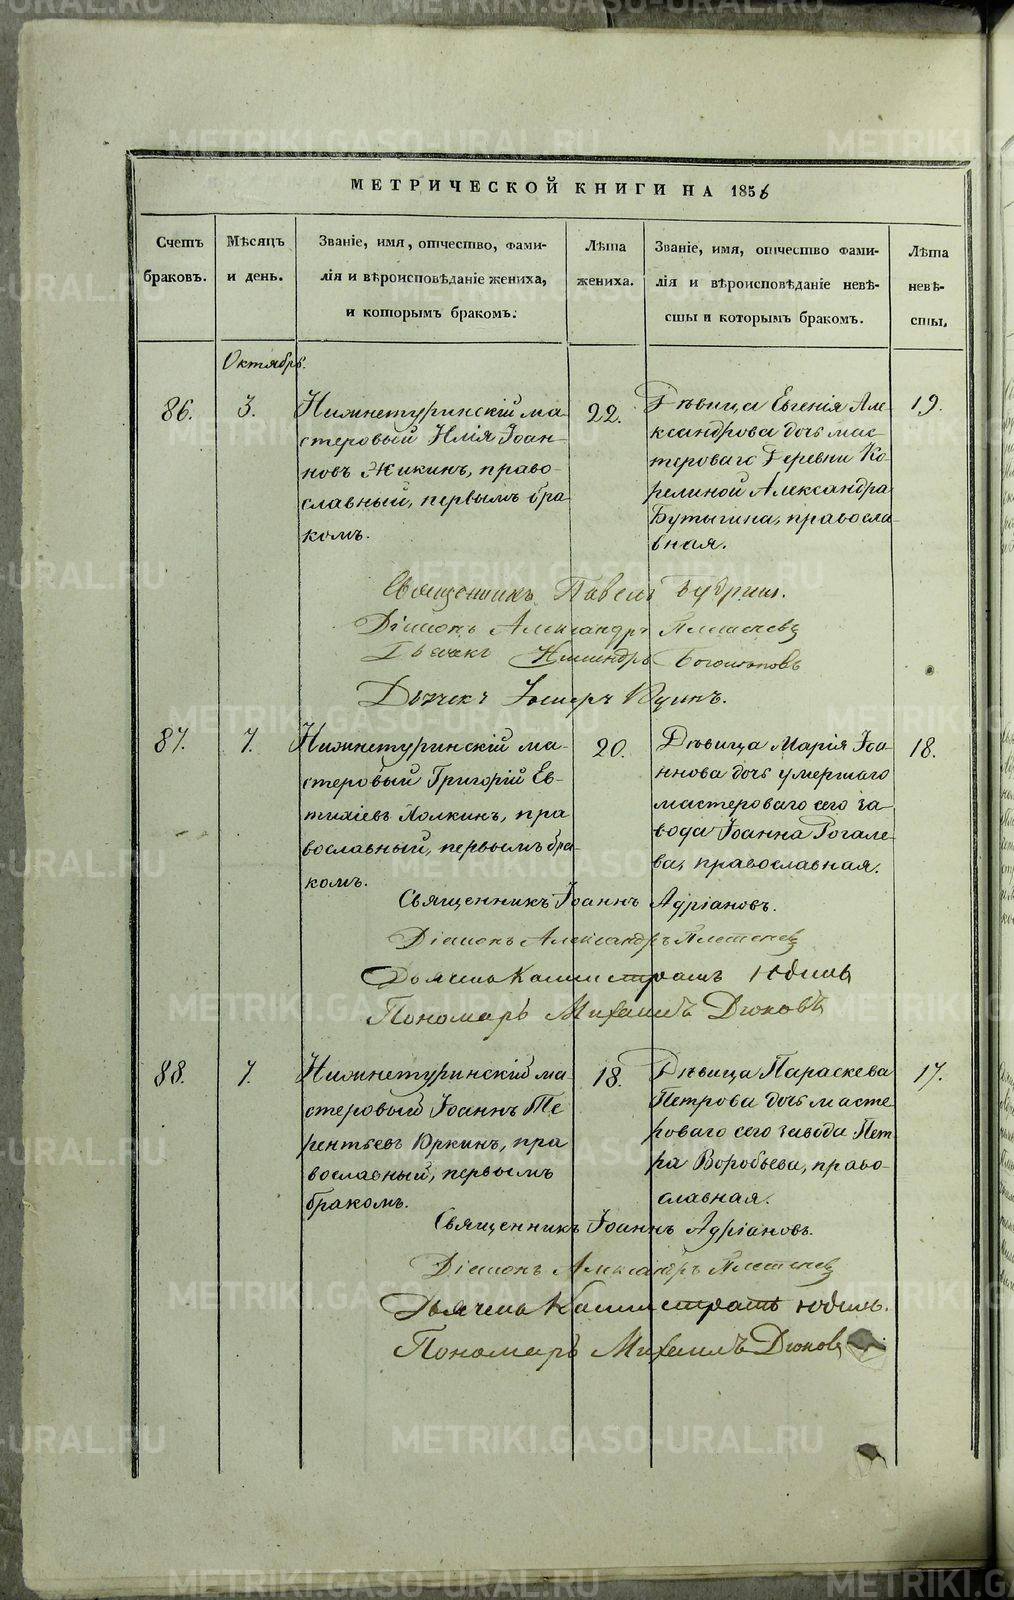 МЕТРИЧЕСКОЙ КНИГИ НА 1856
Счетъ браковъ.
Мѣсяцъ и день.
Званіе, имя, отчество, фами-
лія и вѣроисповѣданіе жениха,
и которымъ бракомъ.
Лѣта жениха.
Званіе, имя, отчество фами-
лія и вѣроисповѣданіе невѣ-
сты и которымъ бракомъ.
Лѣта невѣ-
сты.
Октябрь.
86.
3.
Нижнетуринскій ма-
стеровый Илія Іоан-
новъ Жикинъ, право-
славный, первымъ бра
комъ.
22.
Дѣвица Евгенія Але-
ксандрова дочь мас-
тероваго Деревни Ко-
релиной Александра
Бутыгина, правосла-
вная.
19.
Священникъ Павелъ
Діаконъ Александръ
Дьячекъ
87.
7.
Нижнетуринскій ма-
стеровый Григорій Ев-
тихіевъ Холкинъ, пра
вославный, первымъ бра-
комъ.
20.
Дѣвица Марія Іоа-
ннова дочь умершаго
мастероваго сего за-
вода Іоанна Рогале-
ва, православная.
18.
Священникъ Іоаннъ Адріановъ.
Діаконъ Александръ
Пономарь Михаилъ Дюковъ
88.
7.
Нижнетуринскій ма-
стеровый Іоаннъ Те
рентьевъ Юркинъ, пра
вославный, первымъ
бракомъ.
18.
Дѣвица Параскева
Петрова дочь масте-
роваго сего завода Пет
ра Воробьева, право-
славная.
17.
Священникъ Іоаннъ Адріановъ.
Діаконъ Александръ
Пономарь Михаилъ Дюковъ
METRIKI.GASO-URAL.RU